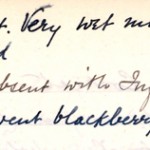 t. Very wet
d
absent with
went blackberry